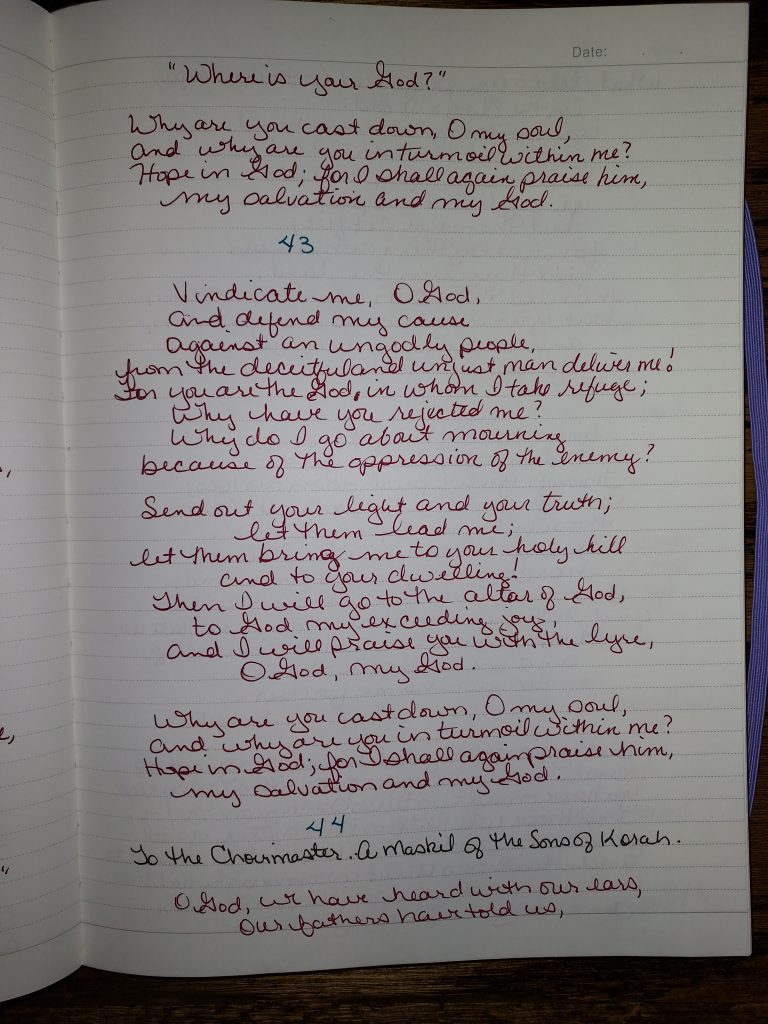 Date:
"Where is your God?"
Why are you cast down, O my soul,
and why are you in turmoil within me?
Hope in God; for I shall again praise him,
my salvation and my God.
43
Vindicate me, O God,
and defend my cause
against an ungodly people,
from the deceitful and unjust man deliver me!
For you are the God, in whom I take refuge;
Why have you rejected me?
Why do I go about mourning
because of the oppression of the enemy?
Send out your light and your truth;
let them lead me;
let them bring me to your holy hill
and to your dwelling!
Then I will go to the altar of God,
to God my exceeding joy,
and I will praise you with the lyre,
O God, my God.
Why are you cast down, O my soul,
and why are you in turmoil within me?
Hope in God; for I shall again praise him,
my salvation and my God.
44
To the Choirmaster. A Maskil of the Sons of Korah.
O God, we have heard with our ears,
Our fathers have told us,